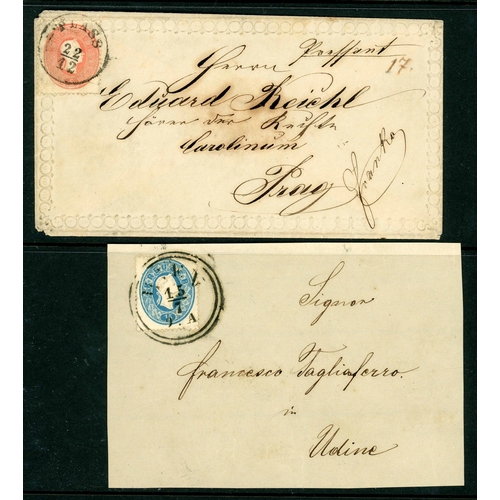 PLASS
22
12
Pressant
17.
Herrn
Eduard Reichl
Hörer der Rechte
Carolinum
Prag
franko
15
7
Signor
Francesco Tagliaferro.
in
Udine